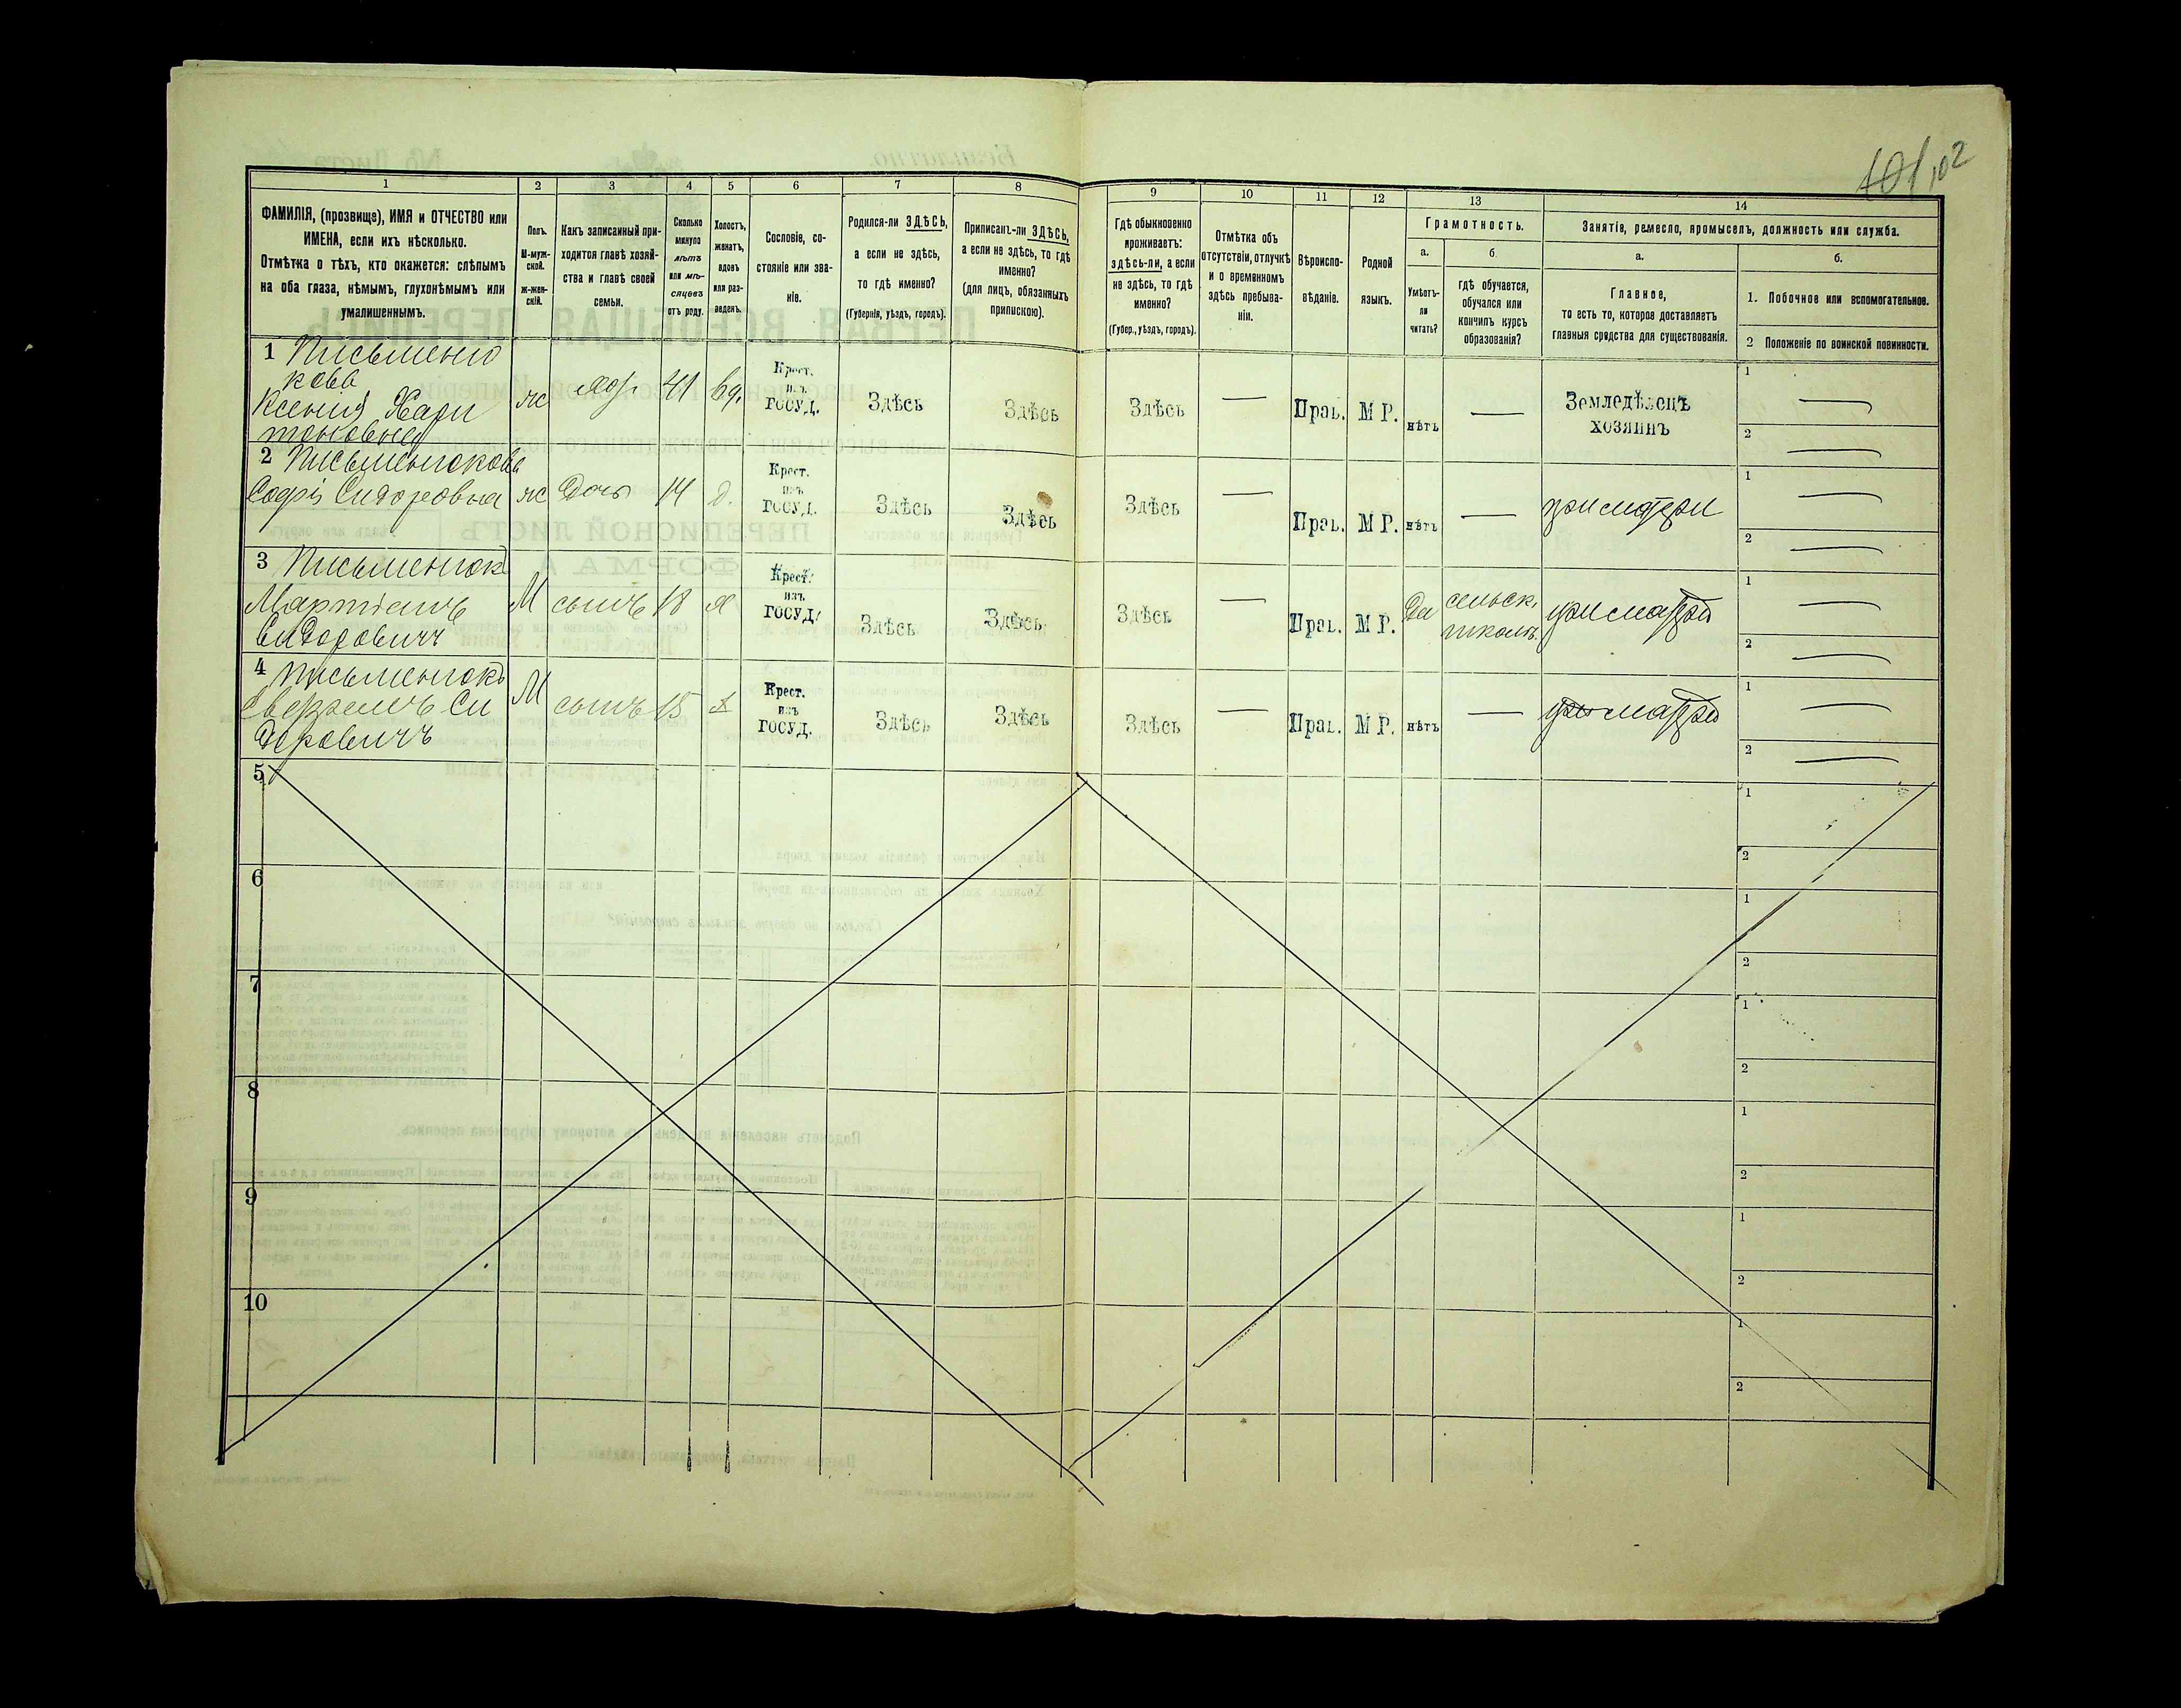 101 102
1 2 3 4 5 6 7 8 9 10 11 12 13 14
ФАМИЛІЯ, (прозвище), ИМЯ и ОТЧЕСТВО или
ИМЕНА, если ихъ нѣсколько.
Отмѣтка о тѣхъ, кто окажется: слѣпымъ
на оба глаза, нѣмымъ, глухонѣмымъ или
умалишеннымъ.
Полъ.
М-муж-
ской.
ж-жен-
скій.
Какъ записанный при-
ходится главѣ хозяй-
ства и главѣ своей
семьи.
Сколько
минуло
лѣтъ
или мѣ-
сяцевъ
отъ роду.
Холостъ,
женатъ,
вдовъ
или раз-
веденъ.
Сословіе, со-
стояніе или зва-
ніе.
Родился-ли ЗДѢСЬ,
а если не здѣсь,
то гдѣ именно?
(Губернія, уѣздъ, городъ).
Приписанъ-ли ЗДѢСЬ,
а если не здѣсь, то гдѣ
именно?
(для лицъ, обязанныхъ
припискою).
Гдѣ обыкновенно
проживаетъ:
здѣсь-ли, а если
не здѣсь, то гдѣ
именно?
(Губер., уѣздъ, городъ).
Отмѣтка объ
отсутствіи, отлучкѣ
и о временномъ
здѣсь пребыва-
ніи.
Вѣроиспо-
вѣданіе.
Родной
языкъ.
Грамотность.
а.
Умѣетъ-
ли
читать?
б.
гдѣ обучается,
обучался или
кончилъ курсъ
образованія?
Занятіе, ремесло, промыселъ, должность или служба.
а.
Главное,
то есть то, которое доставляетъ
главныя средства для существованія.
б.
1. Побочное или вспомогательное.
2 Положеніе по воинской повинности.
1 Письменю
кова
Ксенія Хари
тоновна
ж хоз. 41 вд. Крест. изъ госуд. Здѣсь Здѣсь Здѣсь — Прав. М Р. нѣтъ — Земледѣлецъ хозяинъ
1 —
2 —
2 Письменюкова
Софія Сидоровна ж Дочь 14 д. Крест. изъ госуд. Здѣсь Здѣсь Здѣсь — Прав. М Р. нѣтъ — при матери
1 —
2 —
3 Письменюкъ
Мартинъ
Сидоровичъ
М сынъ 18 Крест. изъ госуд. Здѣсь Здѣсь Здѣсь — Прав. М Р. Да сельск. школѣ при матери
1 —
2 —
4 Письменюкъ
Си
доровичъ
М сынъ 15 х Крест. изъ госуд. Здѣсь Здѣсь Здѣсь — Прав. М Р. нѣтъ — при матери
1 —
2 —
5
1
2
6
1
2
7
1
2
8
1
2
9
1
2
10
1
2